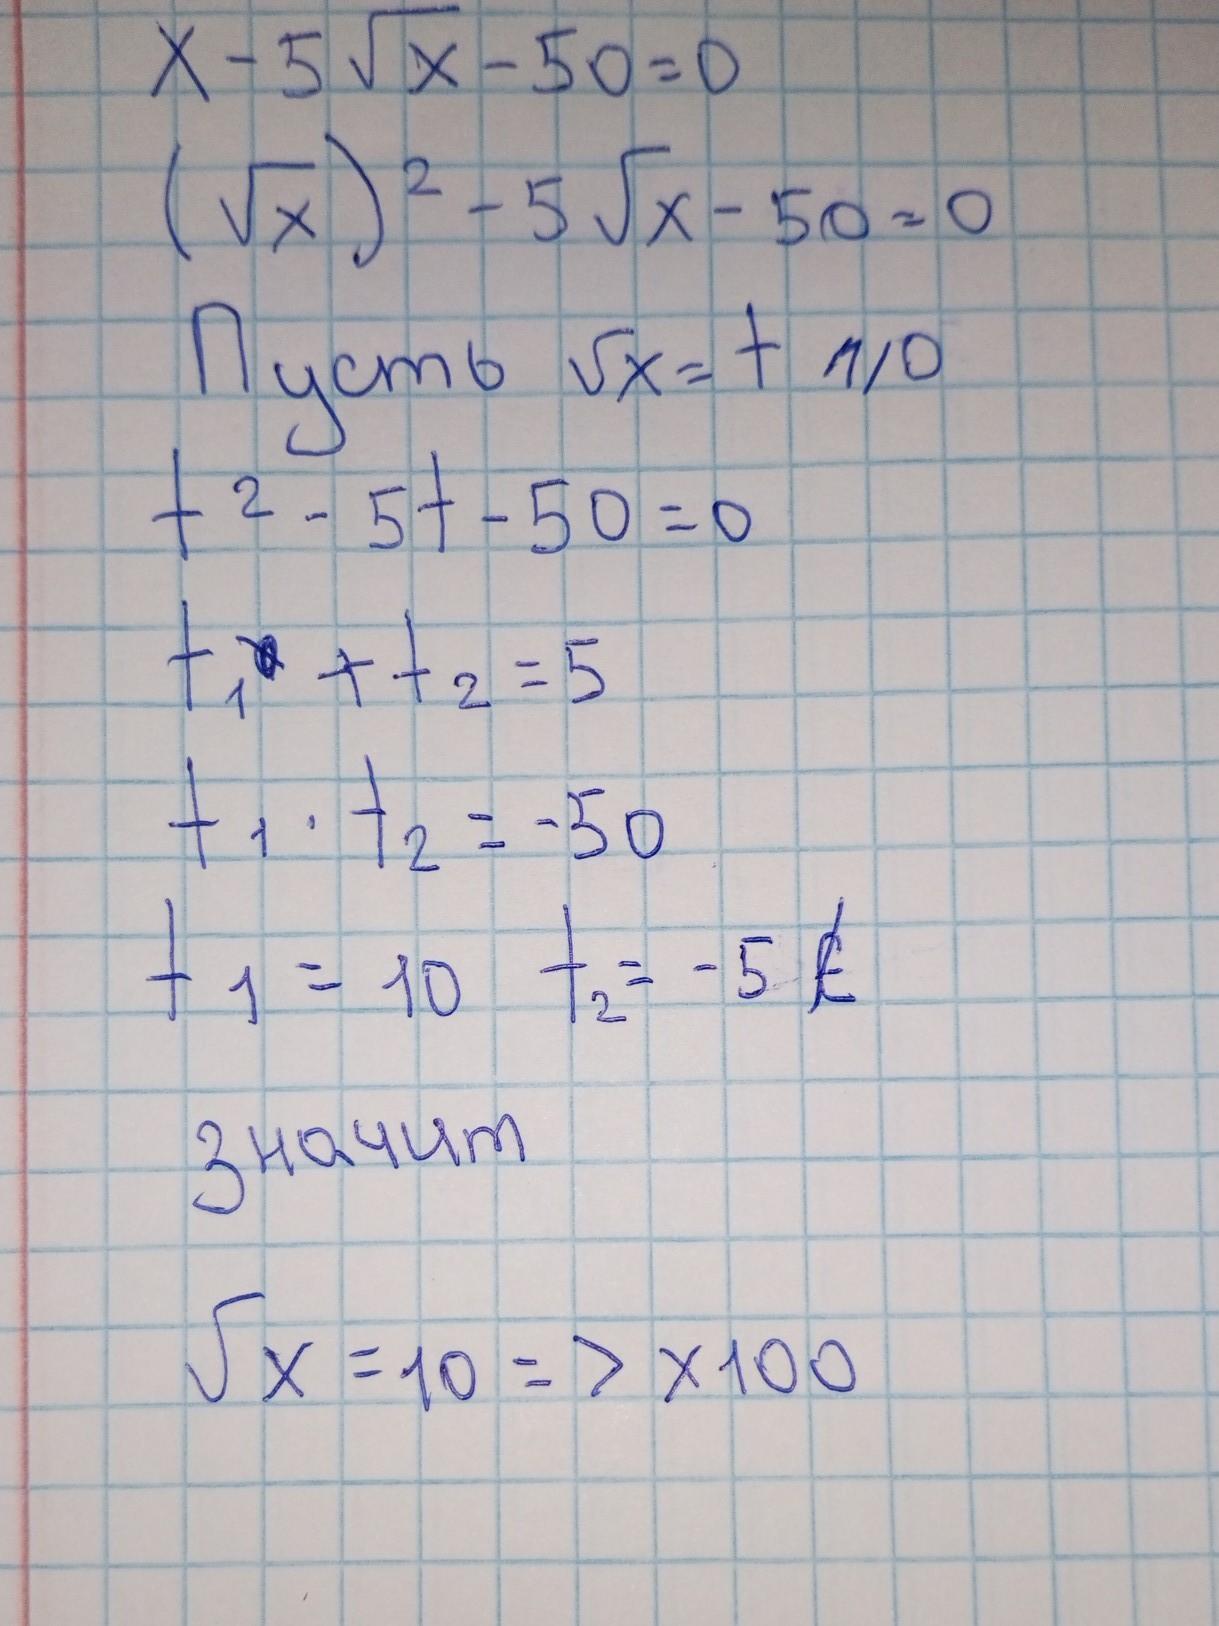 x - 5√x - 50 = 0
(√x)² - 5√x - 50 = 0
Пусть √x = t 1/0
t² - 5t - 50 = 0
t₁ + t₂ = 5
t₁ · t₂ = -50
t₁ = 10 t₂ = -5 ∉
значит
√x = 10 => x100